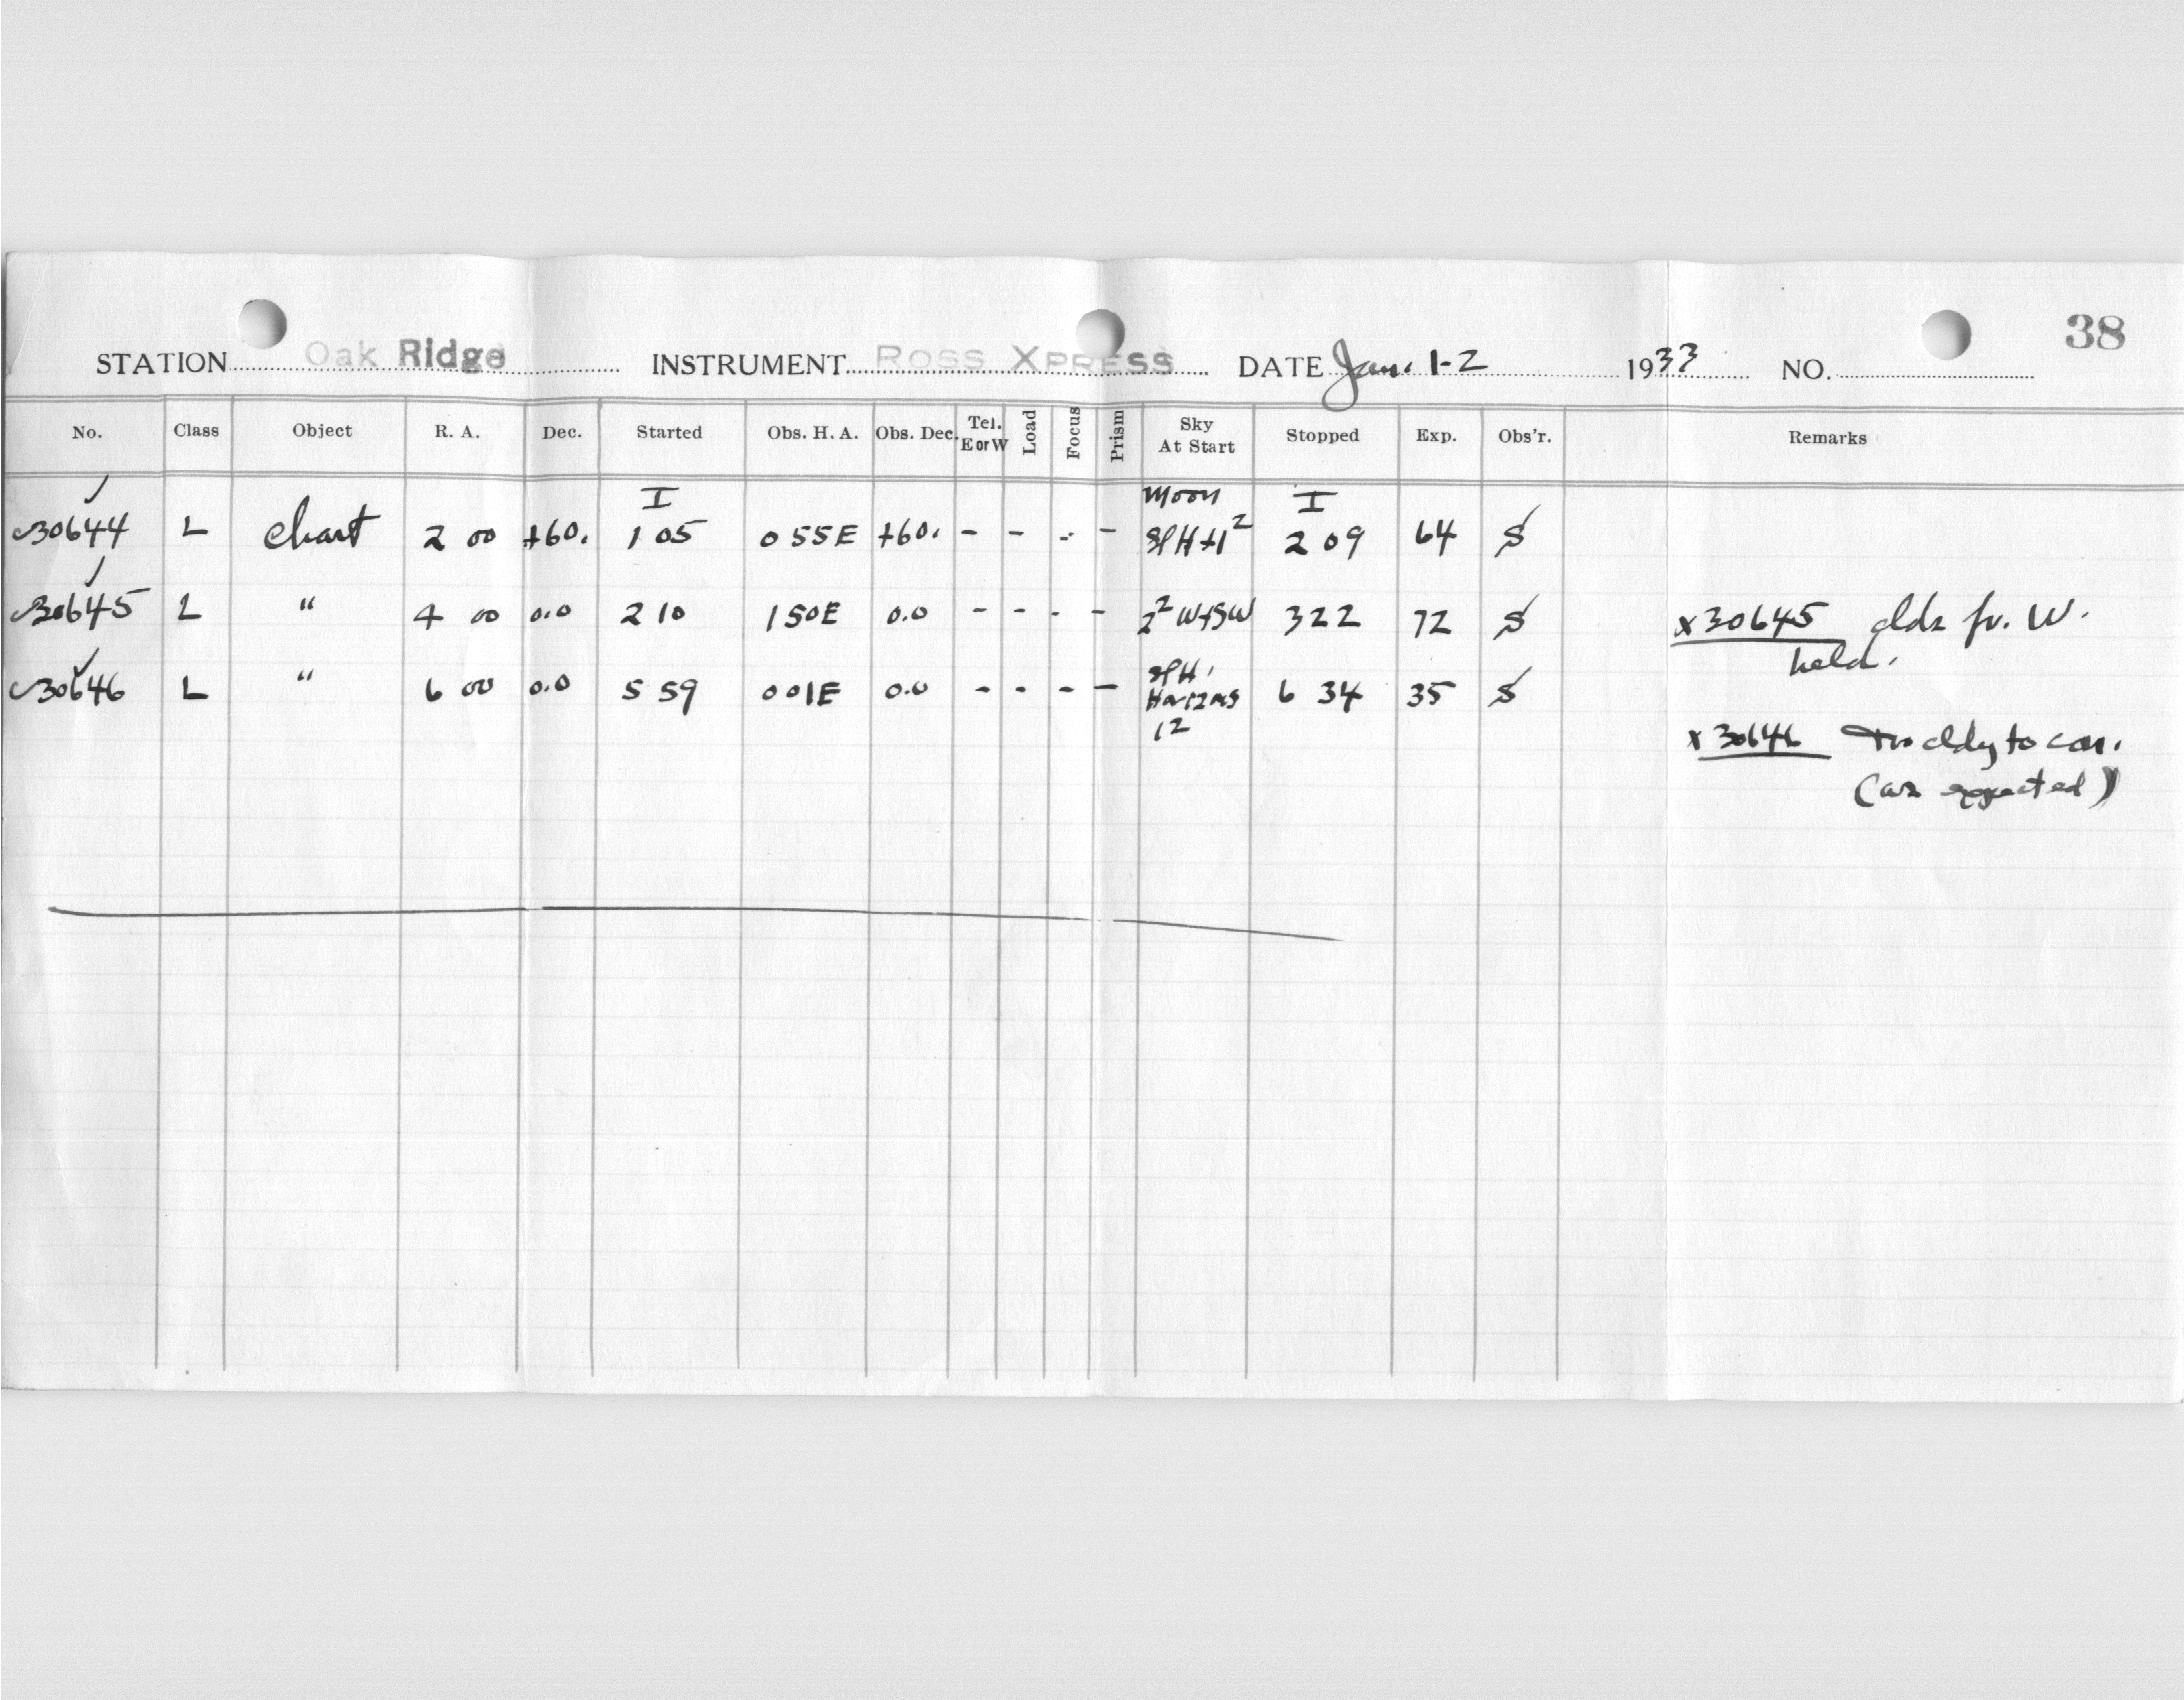 38
STATION Oak Ridge INSTRUMENT Ross XPRESS DATE Jan. 1-2 1933 NO.
No. Class Object R. A. Dec. Started Obs. H. A. Obs. Dec. Tel. E or W Load Focus Prism Sky At Start Stopped Exp. Obs'r. Remarks
I Moon I
30644 L chart 2 00 +60. 1 05 0 55E +60. - - - - SPH+1² 2 09 64 S
30645 L " 4 00 0.0 2 10 1 50E 0.0 - - - - 2² W+SW 3 22 72 S x30645 clds fr. W.
held.
30646 L " 6 00 0.0 5 59 0 01E 0.0 - - - - SPH, 6 34 35 S
12
x 30646 too cldy to con.
(as expected)